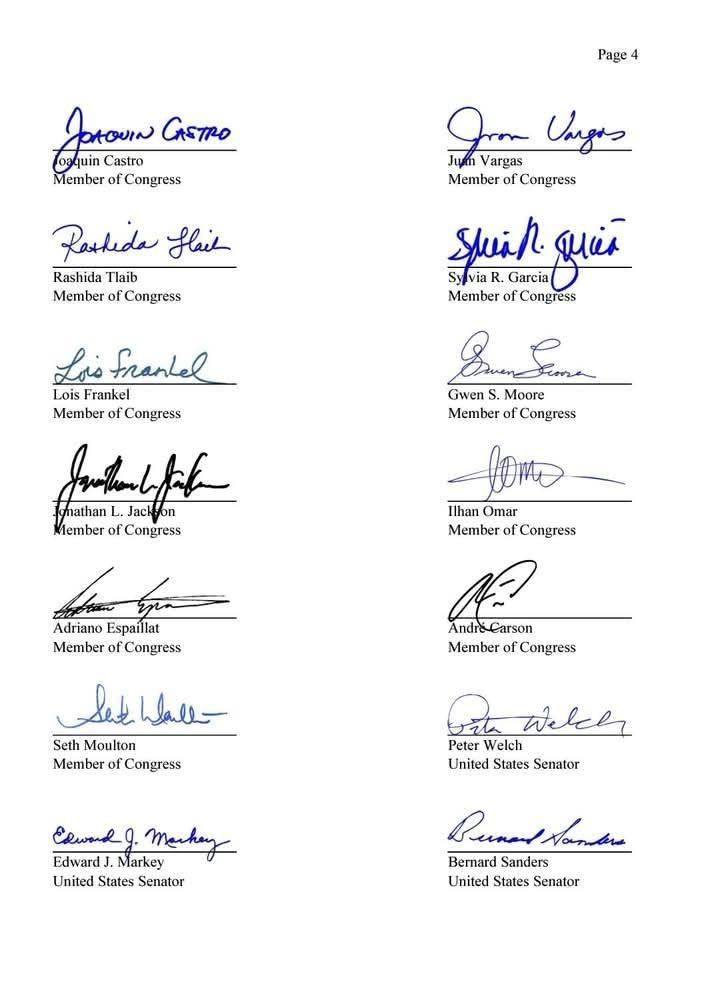 Page 4
JOAQUIN CASTRO
Joaquin Castro
Member of Congress
Juan Vargas
Juan Vargas
Member of Congress
Rashida Tlaib
Rashida Tlaib
Member of Congress
Sylvia R. Garcia
Sylvia R. Garcia
Member of Congress
Lois Frankel
Lois Frankel
Member of Congress
Gwen Moore
Gwen S. Moore
Member of Congress
Jonathan L. Jackson
Jonathan L. Jackson
Member of Congress
Ilhan Omar
Member of Congress
Adriano Espaillat
Member of Congress
André Carson
Member of Congress
Seth Moulton
Member of Congress
Peter Welch
Peter Welch
United States Senator
Edward J. Markey
Edward J. Markey
United States Senator
Bernard Sanders
Bernard Sanders
United States Senator